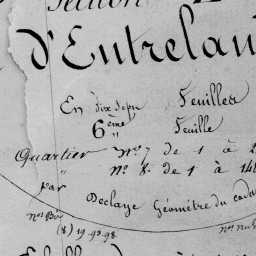 Section
d'Entrelau
En dix sept Feuilles
6ème Feuille
Quartier n° 7 de 1 à 2
" n° 8 de 1 à 14
par
Declaye Géomètre du cada
(8) 19.93.98